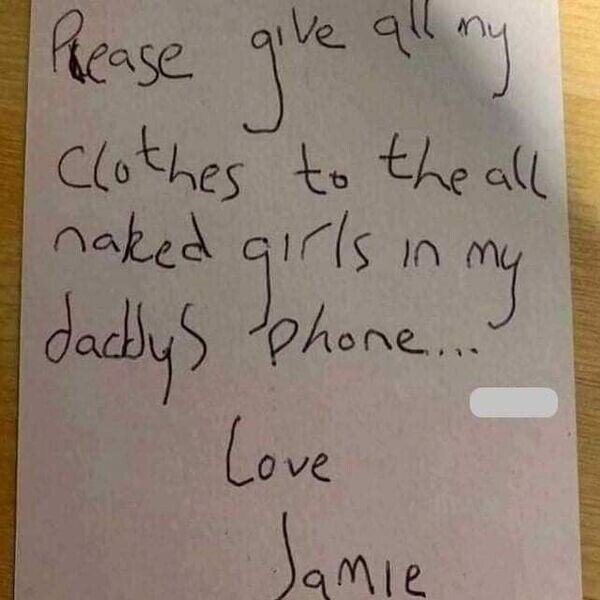 Please give all my
clothes to the all
naked girls in my
daddys phone...
Love
Jamie